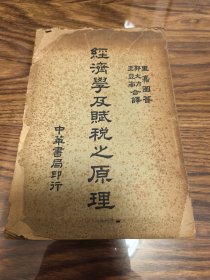 里嘉圖著
郭大力
王亞南合譯
經濟學及賦稅之原理
中華書局印行